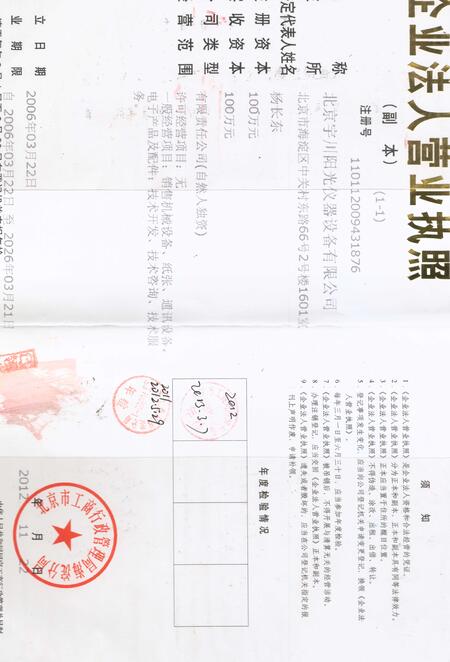 企业法人营业执照
（副　本）
(1-1)
注册号 110112009431876
称 北京宇川阳光仪器设备有限公司
所 北京市海淀区中关村东路66号2号楼1601室
定代表人姓名 杨长东
册资本 100万元
收资本 100万元
司类型 有限责任公司（自然人独资）
营范围 许可经营项目：无
一般经营项目：销售机械设备、纸张、通讯设备、
电子产品及配件；技术开发、技术咨询、技术服
务。
立日期 2006年03月22日
业期限 自 2006年03月22日 至 2026年03月21日
须 知
1 《企业法人营业执照》是企业法人资格和合法经营的凭证。
2 《企业法人营业执照》分为正本和副本，正本和副本具有同等法律效力。
3 《企业法人营业执照》正本应当置于住所的醒目位置。
4 《企业法人营业执照》不得伪造、涂改、出租、出借、转让。
5 登记事项发生变化，应当向公司登记机关申请变更登记，换领《企业法
人营业执照》。
6 每年三月一日至六月三十日，应当参加年度检验。
7 《企业法人营业执照》被吊销后，不得开展与清算无关的经营活动。
8 办理注销登记，应当交回《企业法人营业执照》正本和副本。
9 《企业法人营业执照》遗失或者毁坏的，应当在公司登记机关指定的报
刊上声明作废，申请补领。
年度检验情况
2012
2013.3.7
2011
2012.5.29
北京市工商行政管理局海淀分局
2012 年 11 月 22 日